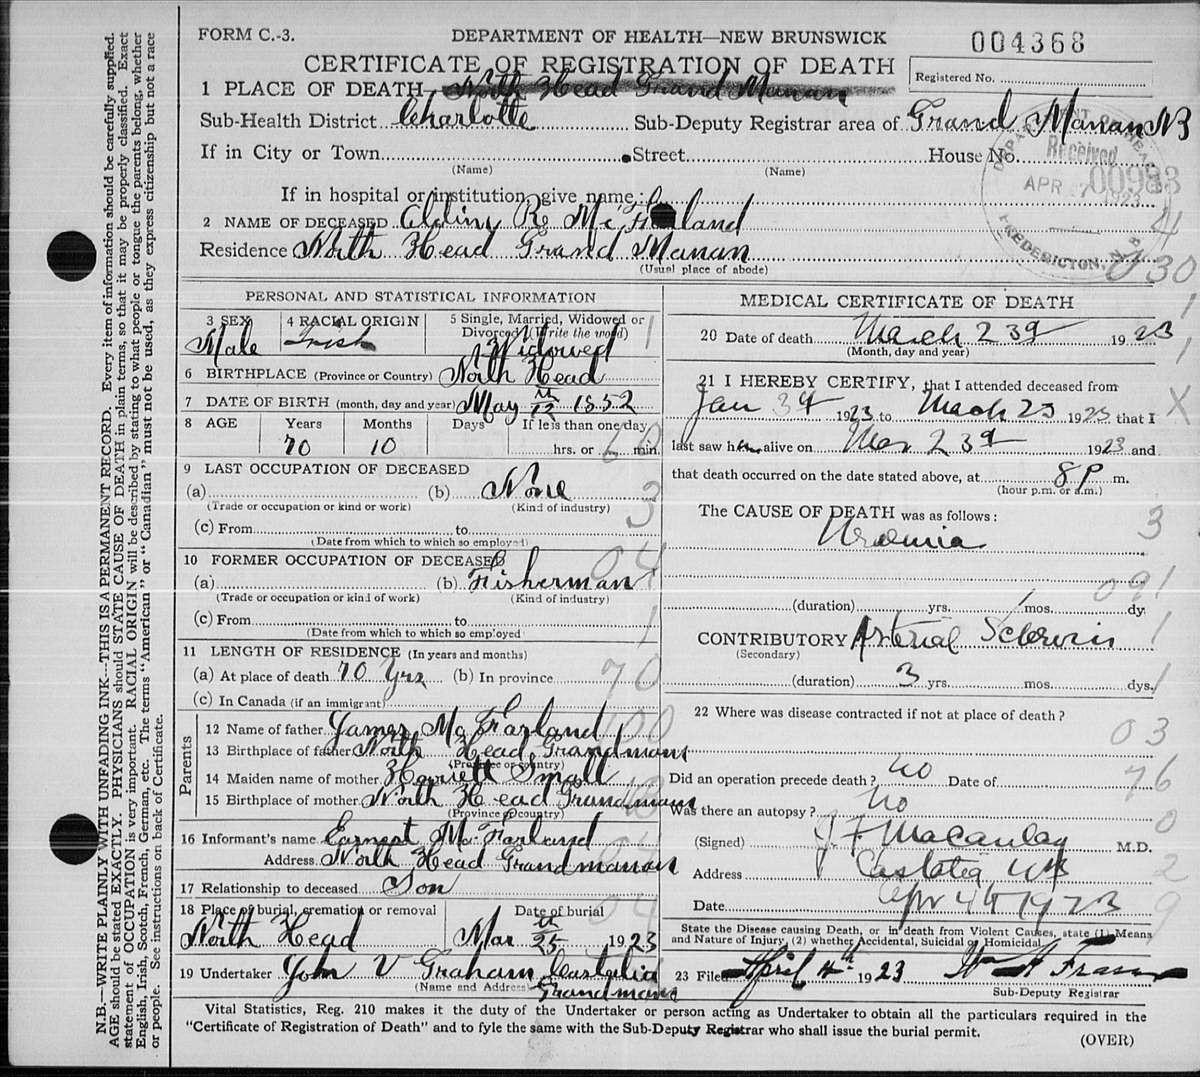 FORM C.-3.
DEPARTMENT OF HEALTH—NEW BRUNSWICK
004368
CERTIFICATE OF REGISTRATION OF DEATH
Registered No.
1 PLACE OF DEATH North Head Grand Manan
Sub-Health District Charlotte Sub-Deputy Registrar area of Grand Manan NB
If in City or Town Street House No.
(Name) (Name)
If in hospital or institution, give name:
DEPARTMENT OF HEALTH
Received
APR 1923
FREDERICTON, N. B.
2 NAME OF DECEASED R McFarland
4
Residence North Head Grand Manan
(Usual place of abode)
030
PERSONAL AND STATISTICAL INFORMATION
3 SEX 4 RACIAL ORIGIN 5 Single, Married, Widowed or Divorced (Write the word)
Male Irish Widowed 1
6 BIRTHPLACE (Province or Country) North Head
7 DATE OF BIRTH (month, day and year) May 12th 1852
8 AGE Years Months Days If less than one day
70 10 hrs. or min.
60
9 LAST OCCUPATION OF DECEASED
(a) (b) None
(Trade or occupation or kind or work) (Kind of industry)
3
(c) From to
(Date from which to which so employed)
10 FORMER OCCUPATION OF DECEASED
04
(a) (b) Fisherman
(Trade or occupation or kind of work) (Kind of industry)
(c) From to 1
(Date from which to which so employed)
11 LENGTH OF RESIDENCE (In years and months)
(a) At place of death 70 Yrs (b) In province 70
(c) In Canada (if an immigrant)
Parents
12 Name of father James McFarland
13 Birthplace of father North Head Grandmans
(Province or country)
14 Maiden name of mother Harriett Small
15 Birthplace of mother North Head Grandmans
(Province or country)
16 Informant's name Earnest McFarland
Address North Head Grandmanan
17 Relationship to deceased Son
18 Place of burial, cremation or removal Date of burial
04
North Head Mar 25th 1923
19 Undertaker John V Graham Castalia
(Name and Address) Grandmans
MEDICAL CERTIFICATE OF DEATH
20 Date of death March 23rd 1923
(Month, day and year)
21 I HEREBY CERTIFY, that I attended deceased from
Jan 3rd 1923 to March 23 1923 that I
last saw him alive on Mar 23rd 1923 and
that death occurred on the date stated above, at 8 P m.
(hour p.m. or a.m.)
The CAUSE OF DEATH was as follows:
Uraemia
3
091
(duration) yrs. 1 mos. dy.
CONTRIBUTORY Arterial Sclerosis 1
(Secondary)
(duration) 3 yrs. mos. dys. 1
22 Where was disease contracted if not at place of death?
03
Did an operation precede death? No Date of 76
Was there an autopsy? No 0
(Signed) J F Macaulay M.D.
Address Castalia NB 2
Date Apr 4th 1923 9
State the Disease causing Death, or in death from Violent Causes, state (1) Means
and Nature of Injury, (2) whether Accidental, Suicidal or Homicidal.
23 Filed April 4th 1923 Wm A Fraser
Sub-Deputy Registrar
Vital Statistics, Reg. 210 makes it the duty of the Undertaker or person acting as Undertaker to obtain all the particulars required in the
"Certificate of Registration of Death" and to fyle the same with the Sub-Deputy Registrar who shall issue the burial permit.
(OVER)
N.B.—WRITE PLAINLY WITH UNFADING INK—THIS IS A PERMANENT RECORD. Every item of information should be carefully supplied.
AGE should be stated EXACTLY. PHYSICIANS should STATE CAUSE OF DEATH in plain terms, so that it may be properly classified. Exact
statement of OCCUPATION is very important. RACIAL ORIGIN will be described by stating to what people or tongue the parents belong, whether
English, Irish, Scotch, French, German, etc. The terms "American" or "Canadian" must not be used, as they express citizenship but not a race
or people. See instructions on back of Certificate.